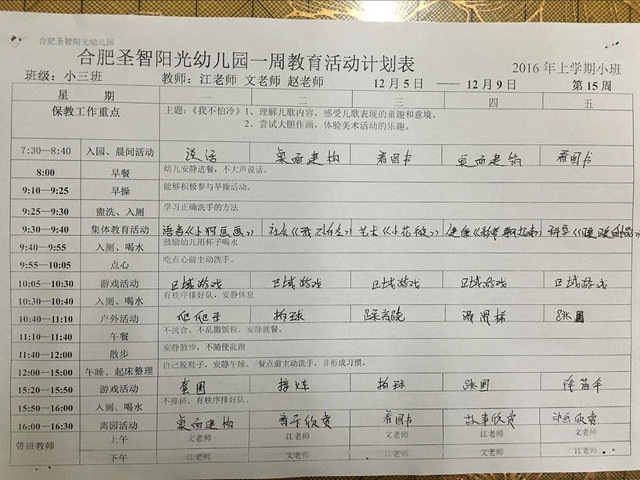 合肥圣智阳光幼儿园
合肥圣智阳光幼儿园一周教育活动计划表
班级：小三班 教师：江老师 文老师 赵老师 12月5日 ——12月9日 2016年上学期小班 第15周
星 期 一 二 三 四 五
保教工作重点 主题：《我不怕冷》1、理解儿歌内容，感受儿歌表现的童趣和意境。
2、尝试大胆作画，体验美术活动的乐趣。
7:30—8:40 入园、晨间活动 说话 桌面建构 看图书 桌面建构 看图书
8:00 早餐 幼儿安静进餐，不大声说话。
9:10—9:25 早操 能够积极参与早操活动。
9:25—9:30 盥洗、入厕 学习正确洗手的方法
9:30—9:40 集体教育活动 语言《小猫 》 社会《我不 》 艺术《小花被》 健康《 》 科学《暖暖的 》
9:40—9:55 入厕、喝水 鼓励幼儿用杯子喝水
9:55—10:05 点心 吃点心前主动洗手。
10:05—10:30 游戏活动 区域游戏 区域游戏 区域游戏 区域游戏 区域游戏
10:30—10:40 入厕、喝水 有秩序排好队，安静休息
10:40—11:10 户外活动 爬爬子 拍球 滑滑梯 跳圈
11:10—11:40 午餐 不挑食、不乱撒饭粒，安静就餐。
11:40—12:00 散步 安静散步，不随便乱跑
12:00—15:00 午睡、起床整理 自己脱鞋子，安静午睡、餐点前主动洗手，并形成习惯。
15:20—15:50 游戏活动 套圈 接火车 拍球 跳圈
15:50—16:00 入厕、喝水 不推挤、有秩序排好队。
16:00—16:30 离园活动 桌面建构 音乐欣赏 看图书 故事欣赏 动画欣赏
带班教师 上午 文老师 江老师 文老师 江老师 文老师
下午 江老师 文老师 江老师 文老师 江老师